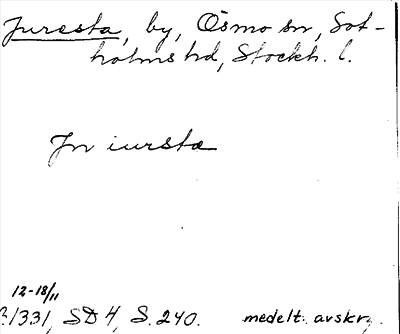 Juresta, by, Ösmo sn, Sot-
holms hd, Stockh. l.
Jn iursta
12-18/11
1331, SD 4, S. 240. medelt. avskr.